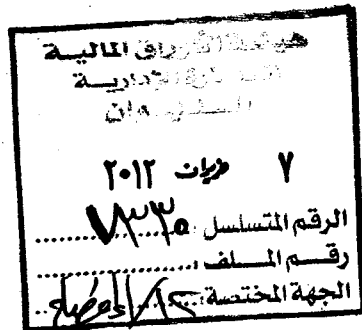 هيئة الأوراق المالية
الدائرة الإدارية
الديوان
٧ حزيران ٢٠١٢
الرقم المتسلسل ٧٣٣٥
رقم الملف
الجهة المختصة